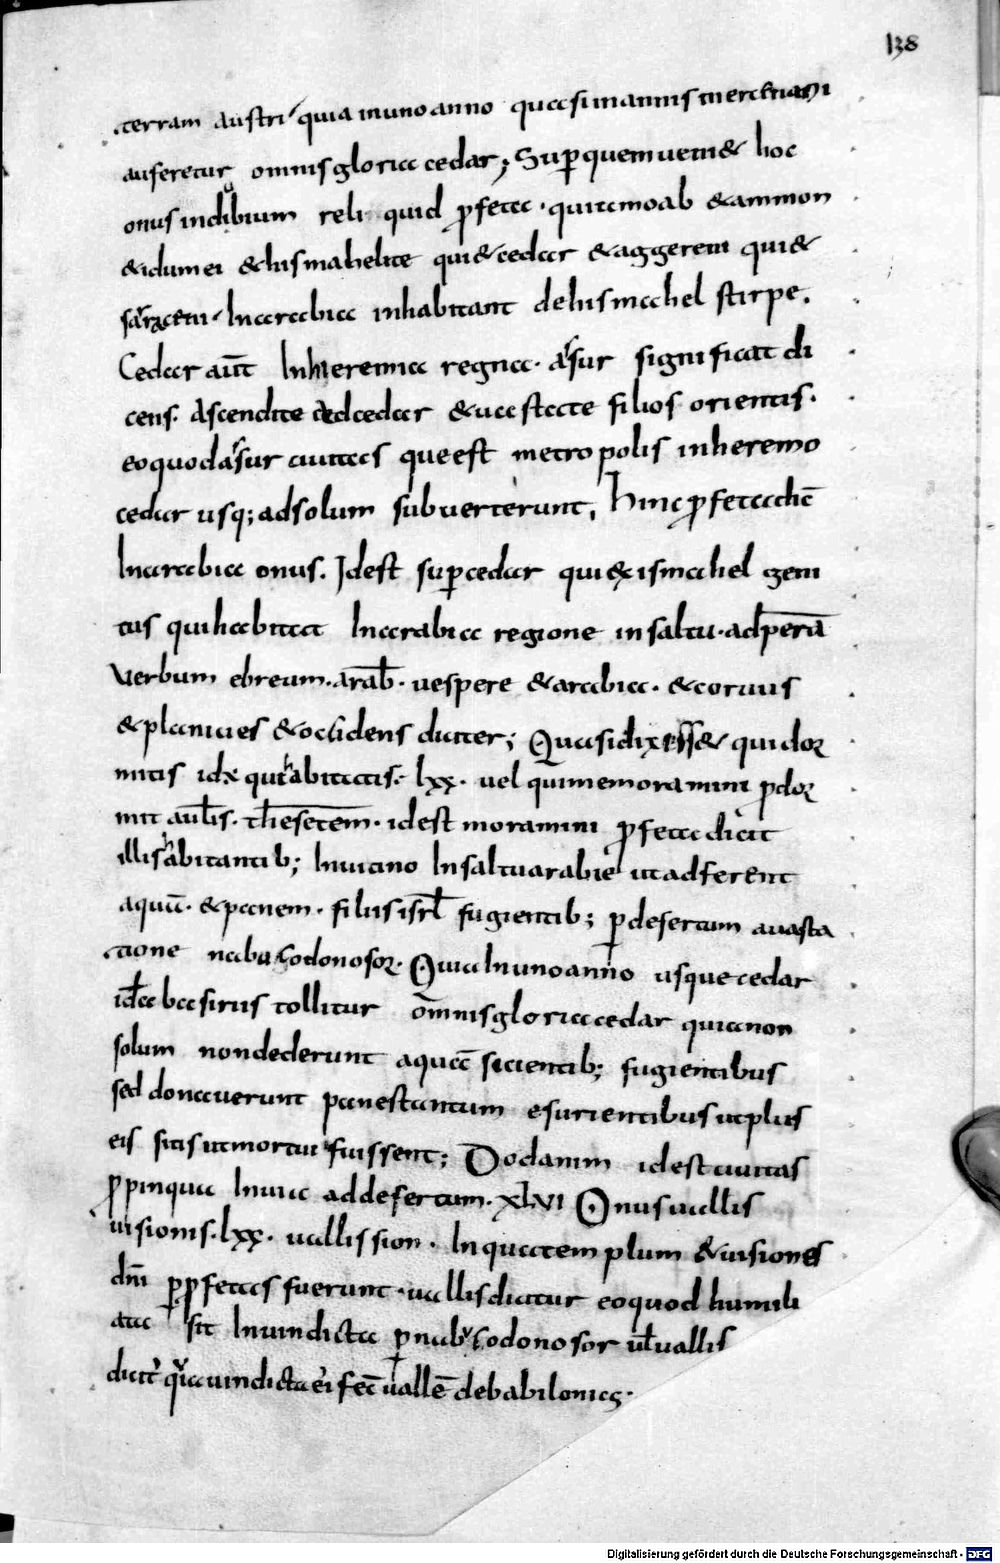 138
terram austri quia in uno anno quasi in annis mercenarii
auferetur omnis gloria cedar; Sup quem ueni& hoc
onus indiuium reliquid pfeta · quita moab &ammon
&idumei &hismahelite qui&cedar &aggereni qui&
sarraceni· In arabia inhabitant de hismahel stirpe.
Cedar aut̄ In hieremia regna· assur significat di
cens. Ascendite ad cedar &uastate filios orientis.
eo quod assur ciuitas que est metropolis in heremo
cedar usq; ad solum subuerterunt, Hinc pfeta dic̄
In arabia onus. Idest sup cedar qui &xismahel geni
tus qui habitat In arabia regione in saltu·
Verbum ebreum· arab̄· uespere &arabia· &coruus
&planities &occidens dicitur; Quasi dixiss& qui dor
mitis id̄ qui habitatis· lxx· uel qui memoramini
idest moramini pfeta dicit
illis habitantib; In uicino In saltu arabie ut adferent
aquā· &panem· filiis isrl̄ fugientib; p desertum a uasta
tione nabuchodonosor· Quia In uno anno usque cedar
tollitur omnis gloria cedar quia non
solum non dederunt aquā sicientib; fugientibus
sed donauerunt panes tantum esurientibus ut plus
eis sitis ut mortui fuissent; Dodanim idest ciuitas
ppinqua In uia ad desertum· XLVI Onus uallis
uisionis· lxx· uallis sion· In qua templum &uisiones
dn̄i p pfetas fuerunt· uallis dicitur eo quod humili
ata sit In uindicta p nabuchodonosor ul̄ uallis
uindicta ei fec̄ uallē de babilonia·
Digitalisierung gefördert durch die Deutsche Forschungsgemeinschaft - DFG